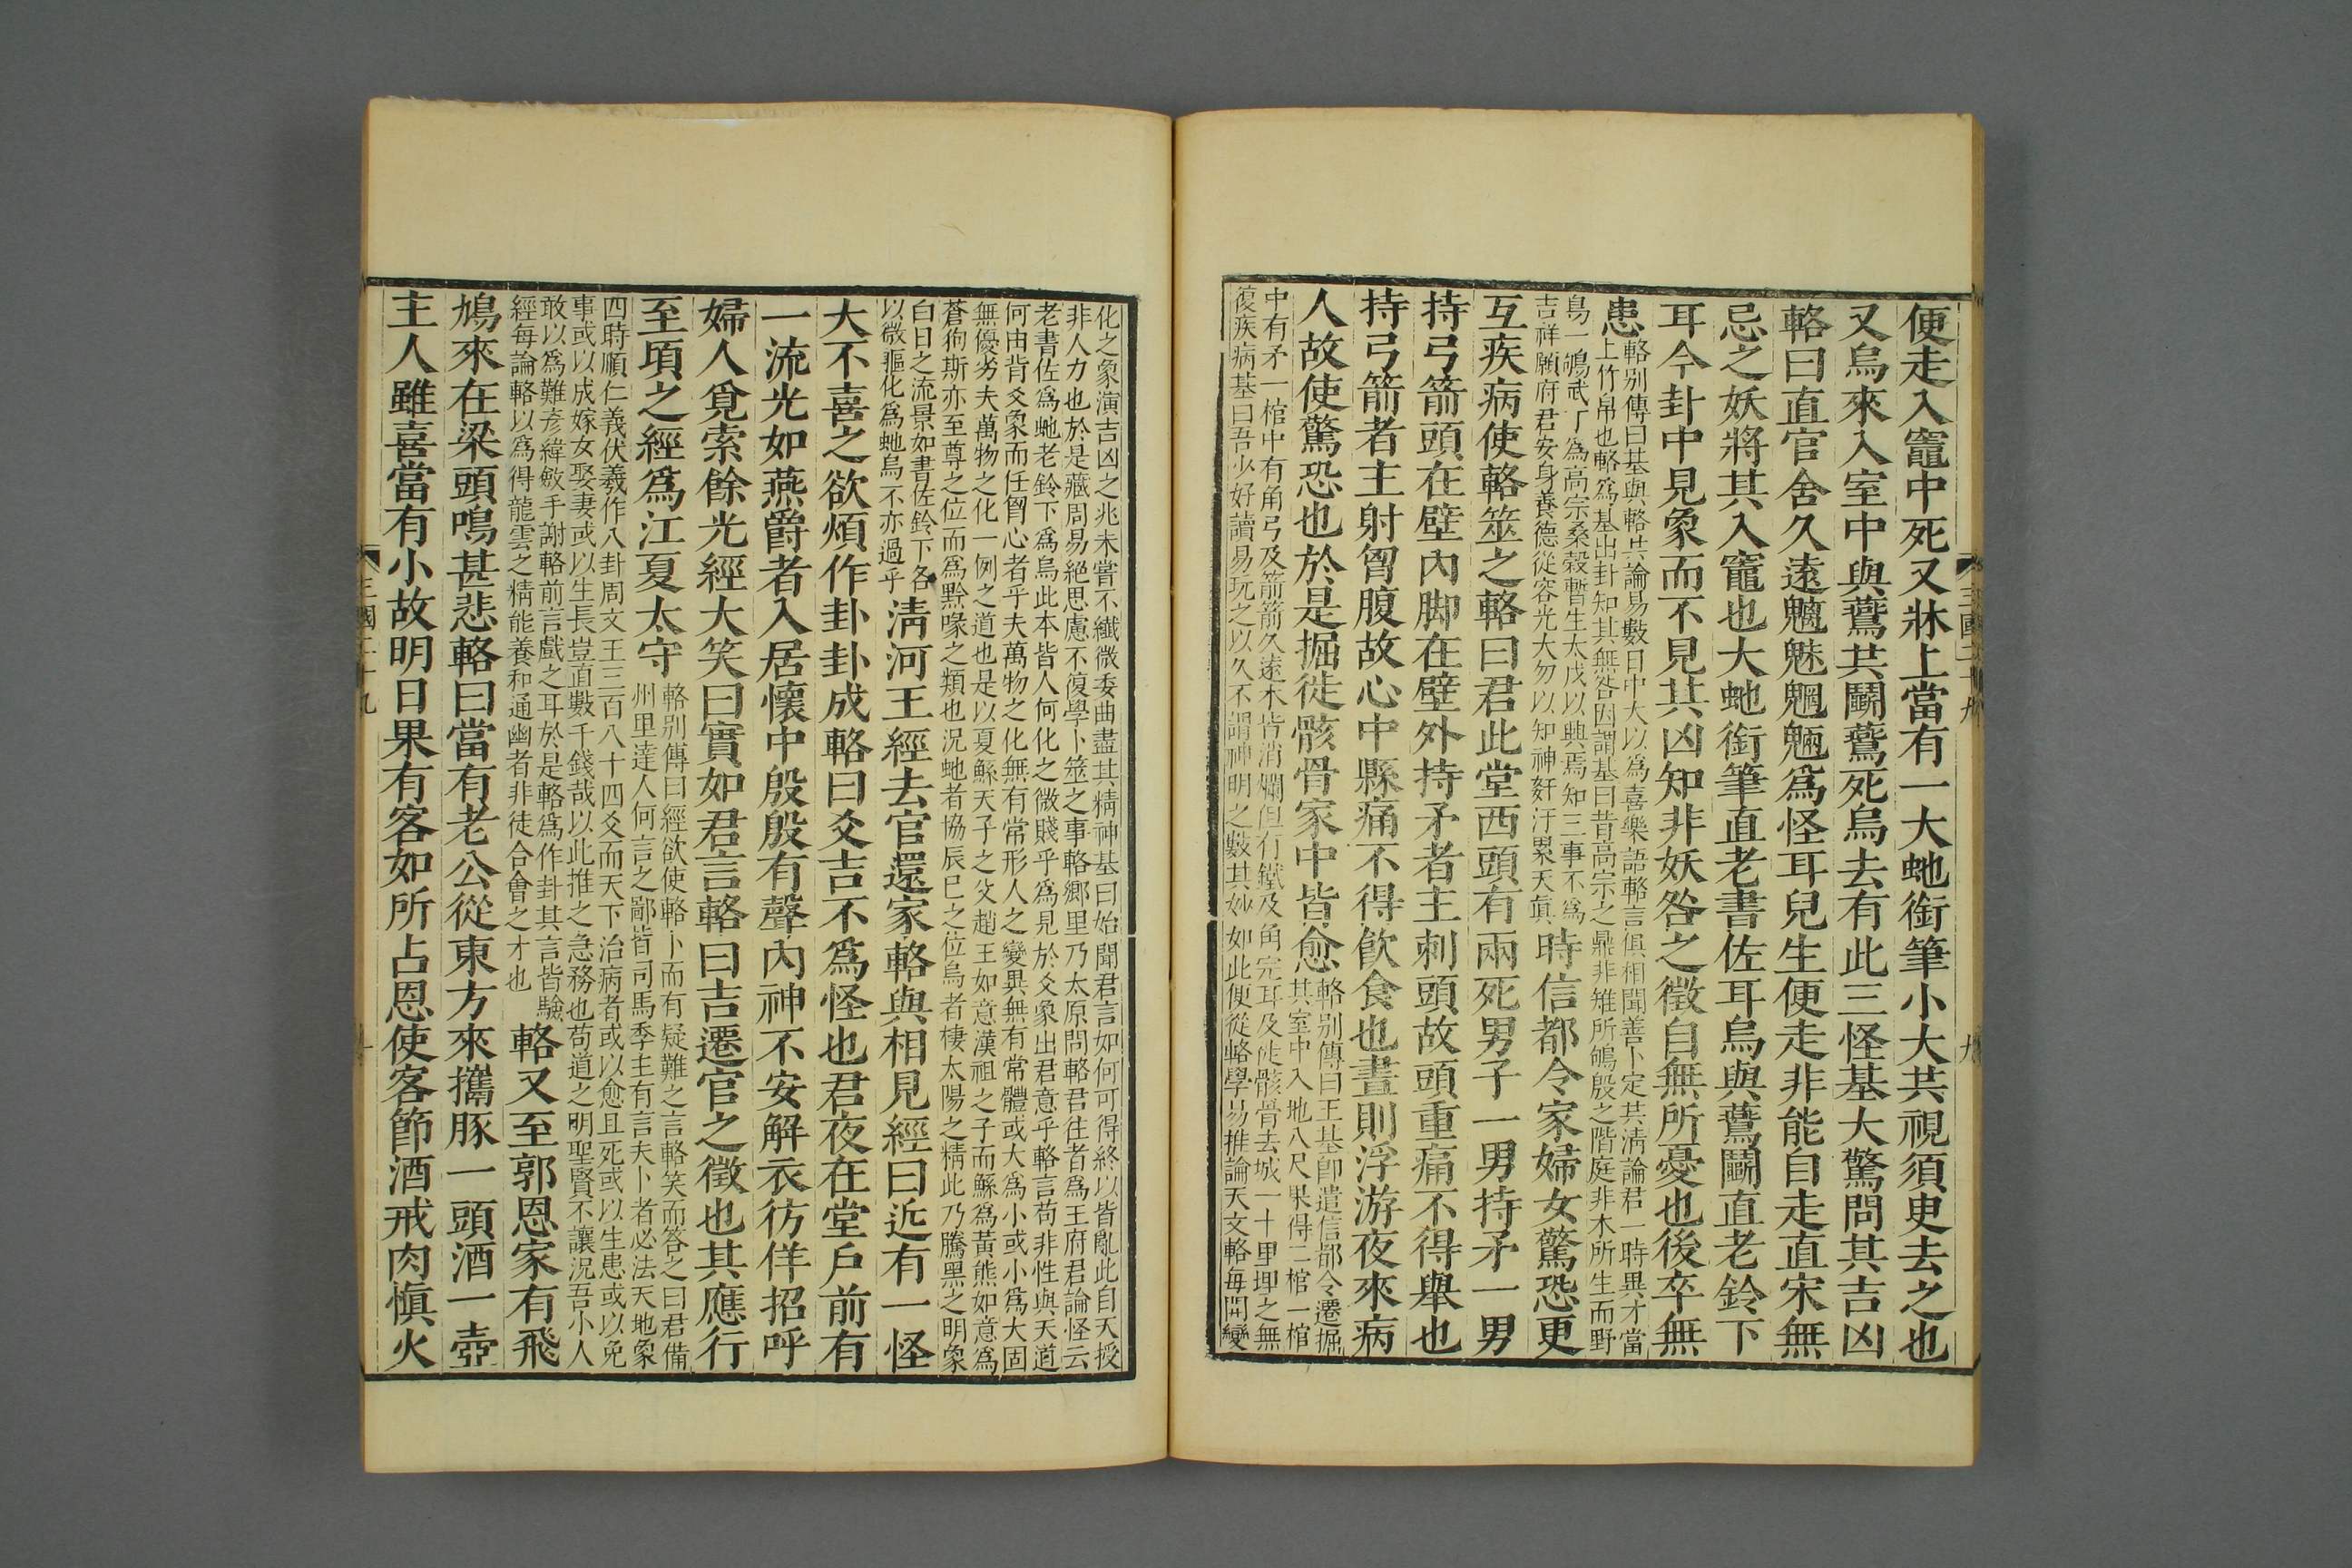 便走入竈中死又牀上當有一大虵銜筆小大共視須更去之也
又烏來入室中與鷰共鬬鷰死烏去有此三怪基大驚問其吉凶
輅曰直官舍久遠魑魅魍魎爲怪耳兒生便走非能自走直宋無
忌之妖將其入竈也大虵銜筆直老書佐耳烏與鷰鬬直老鈴下
耳今卦中見象而不見其凶知非妖咎之徵自無所憂也後卒無
患
輅别傳曰基與輅共論易數日中大以爲喜樂語輅言俱相聞善卜定共清論君一時異才當
上竹帛也輅爲基出卦知其無咎因謂基曰昔高宗之鼎非雉所鴝殷之階庭非木所生而野
鳥一鴝武丁爲高宗桑榖暫生太戊以興焉知三事不爲
吉祥願府君安身養德從容光大勿以知神姧汙累天眞
時信都令家婦女驚恐更
互疾病使輅筮之輅曰君此堂西頭有兩死男子一男持矛一男
持弓箭頭在壁內脚在壁外持矛者主刺頭故頭重痛不得舉也
持弓箭者主射胷腹故心中縣痛不得飮食也晝則浮游夜來病
人故使驚恐也於是掘徙骸骨家中皆愈
輅别傳曰王基卽遣信都令遷掘
其室中入地八尺果得二棺一棺
中有矛一棺中有角弓及箭箭久遠木皆消爛但有鐵及角完耳及徙骸骨去城一十里埋之無
復疾病基曰吾少好讀易玩之以久不謂神明之數其妙如此便從輅學易推論天文輅每開變
化之象演吉凶之兆未嘗不纖微委曲盡其精神基曰始聞君言如何可得終以皆亂此自天授
非人力也於是藏周易絕思慮不復學卜筮之事輅鄉里乃太原問輅君往者爲王府君論怪云
老書佐爲虵老鈴下爲烏此本皆人何化之微賤乎爲見於爻象出君意乎輅言苟非性與天道
何由背爻象而任胷心者乎夫萬物之化無有常形人之變異無有常體或大爲小或小爲大固
無優劣夫萬物之化一例之道也是以夏鯀天子之父趙王如意漢祖之子而鯀爲黃熊如意爲
蒼狗斯亦至尊之位而爲黔喙之類也況虵者協辰巳之位烏者棲太陽之精此乃騰黑之明象
白日之流景如書佐鈴下各
以微軀化爲虵烏不亦過乎
淸河王經去官還家輅與相見經曰近有一怪
大不喜之欲煩作卦卦成輅曰爻吉不爲怪也君夜在堂戶前有
一流光如燕爵者入居懷中殷殷有聲內神不安解衣彷佯招呼
婦人覓索餘光經大笑曰實如君言輅曰吉遷官之徵也其應行
至頃之經爲江夏太守
輅别傳曰經欲使輅卜而有疑難之言輅笑而答之曰君備
州里達人何言之鄙皆司馬季主有言夫卜者必法天地象
四時順仁義伏羲作八卦周文王三百八十四爻而天下治病者或以愈且死或以生患或以免
事或以成嫁女娶妻或以生長豈直數千錢哉以此推之急務也苟道之明聖賢不讓況吾小人
敢以爲難彦緯斂手謝輅前言戲之耳於是輅爲作卦其言皆驗
經每論輅以爲得龍雲之精能養和通幽者非徒合會之才也
輅又至郭恩家有飛
鳩來在梁頭鳴甚悲輅曰當有老公從東方來攜豚一頭酒一壺
主人雖喜當有小故明日果有客如所占恩使客節酒戒肉愼火
三國二十九